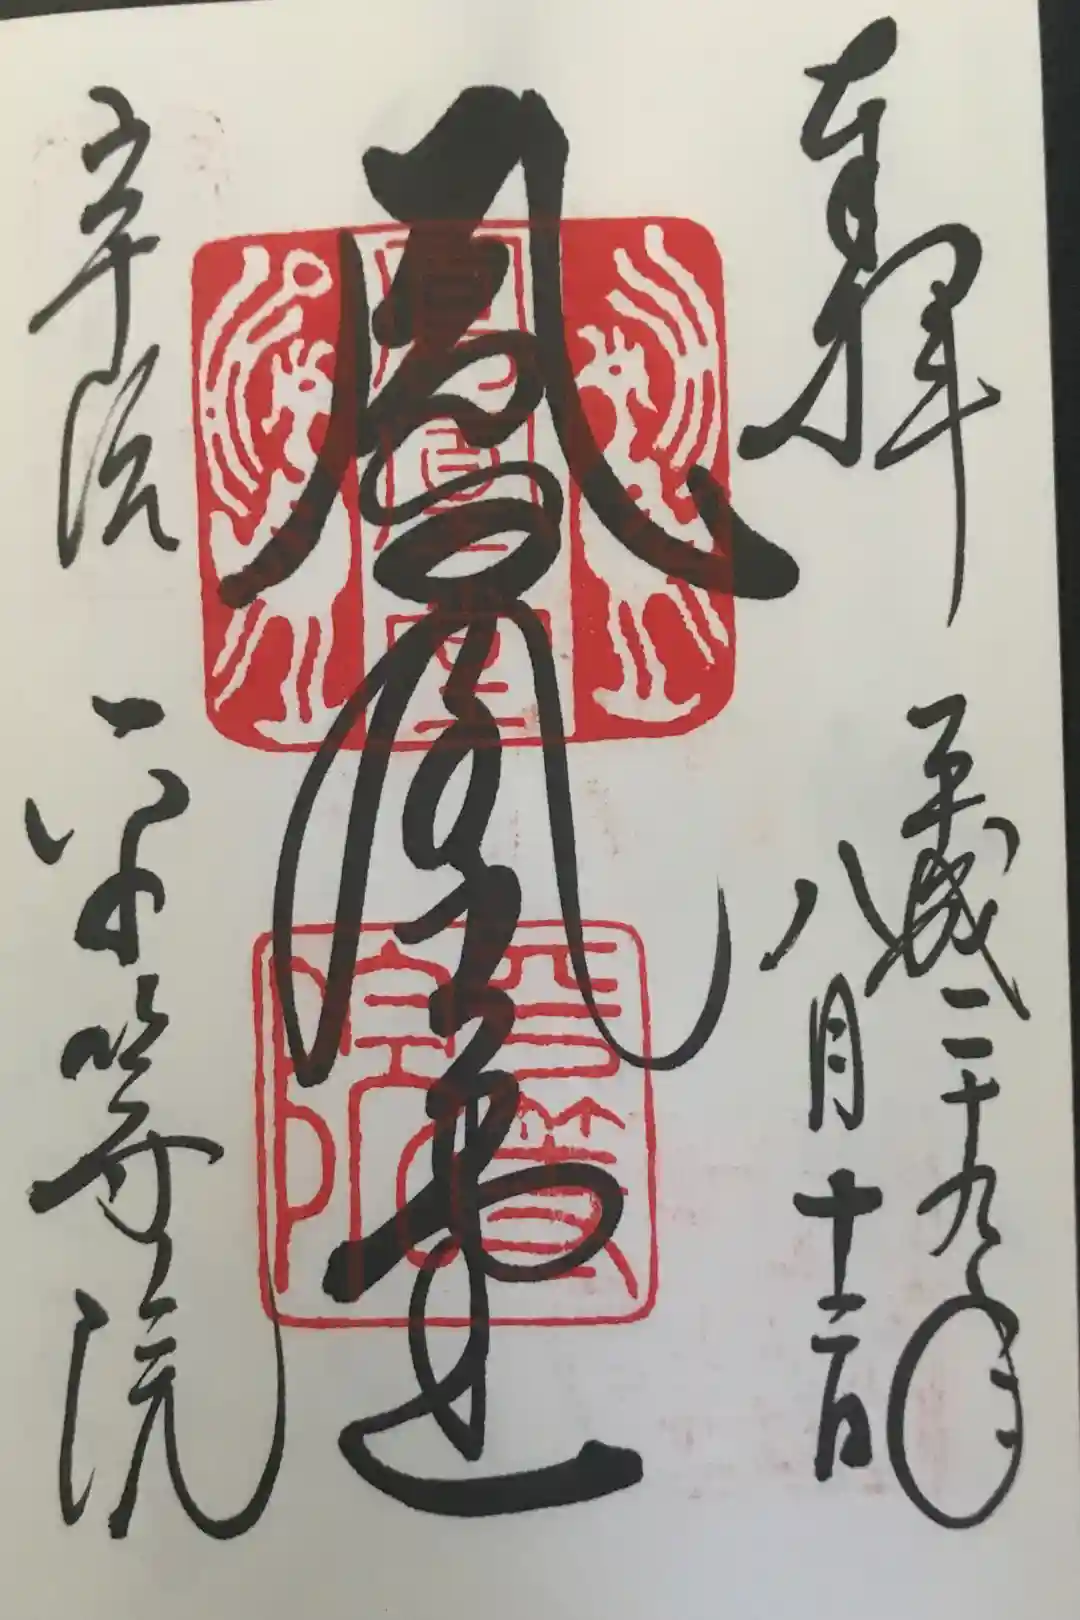 奉拝
平成二十九年
八月十二日
鳳凰堂
鳳凰堂
平等院
宇治
平等院